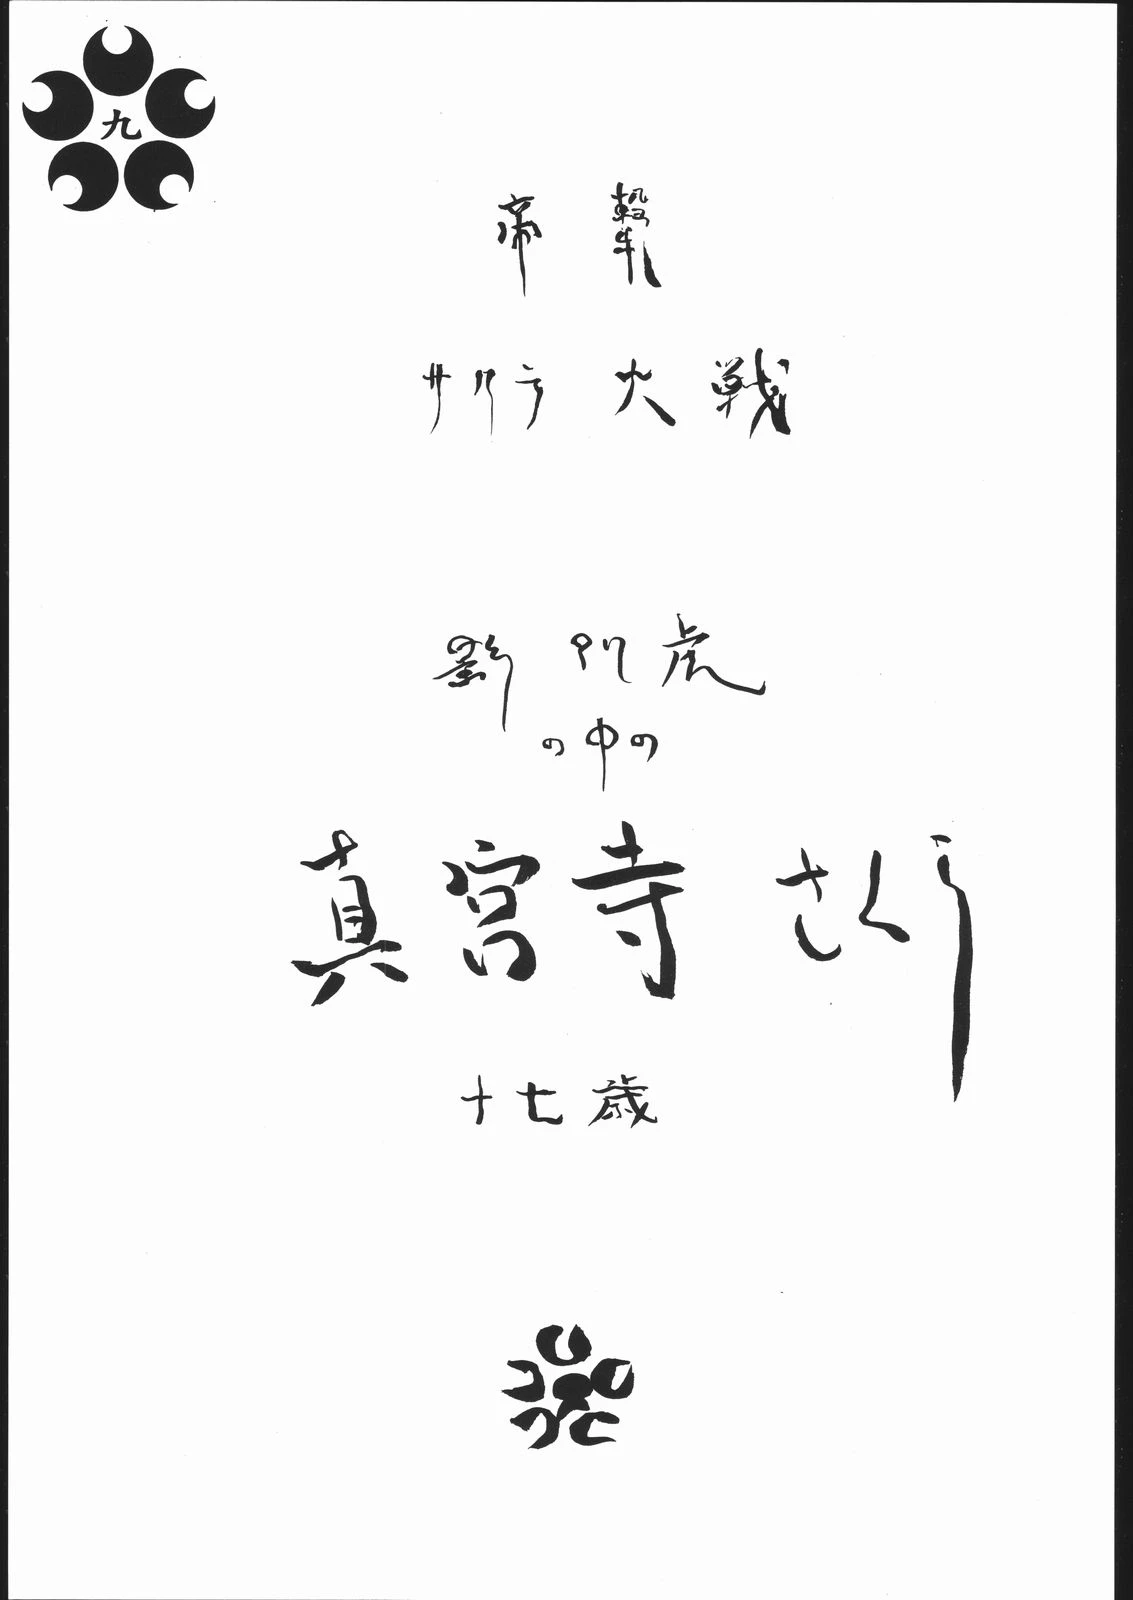 九
帝撃
サクラ大戦
劉 の中の
真宮寺 さくら
十七歳